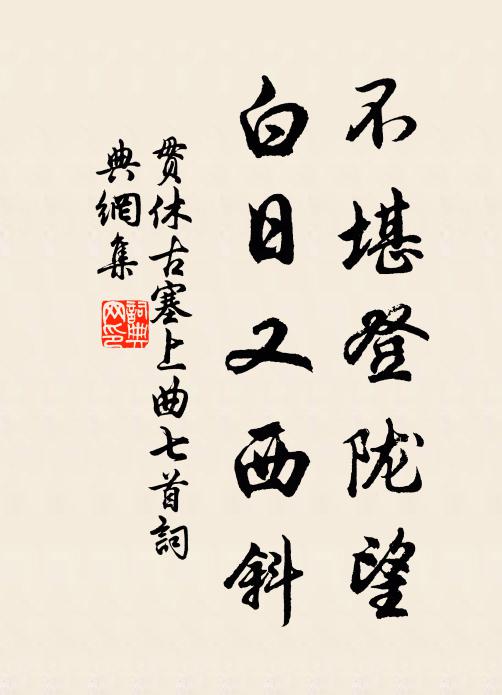 不堪登陇望
白日又西斜
贯休古塞上曲七首詞
典網集
詞典
网印